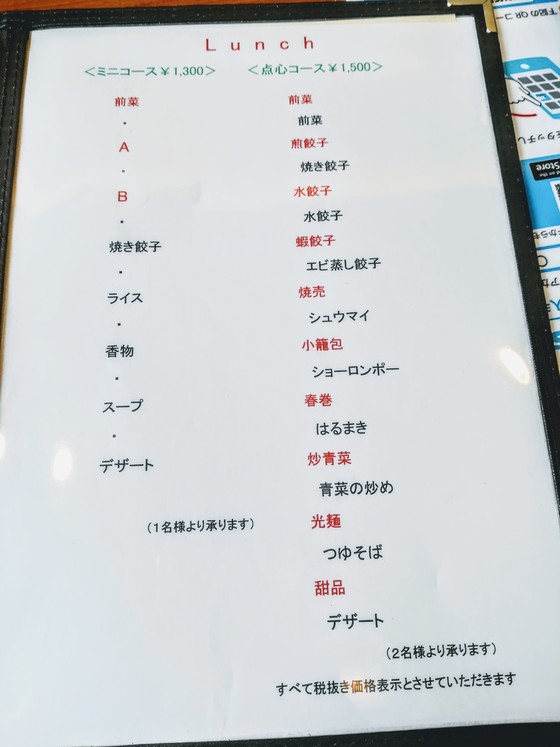 Lunch
＜ミニコース￥1,300＞
前菜
・
A
・
B
・
焼き餃子
・
ライス
・
香物
・
スープ
・
デザート
（1名様より承ります）
＜点心コース￥1,500＞
前菜
前菜
煎餃子
焼き餃子
水餃子
水餃子
蝦餃子
エビ蒸し餃子
焼売
シュウマイ
小籠包
ショーロンポー
春巻
はるまき
炒青菜
青菜の炒め
光麺
つゆそば
甜品
デザート
（2名様より承ります）
すべて税抜き価格表示とさせていただきます